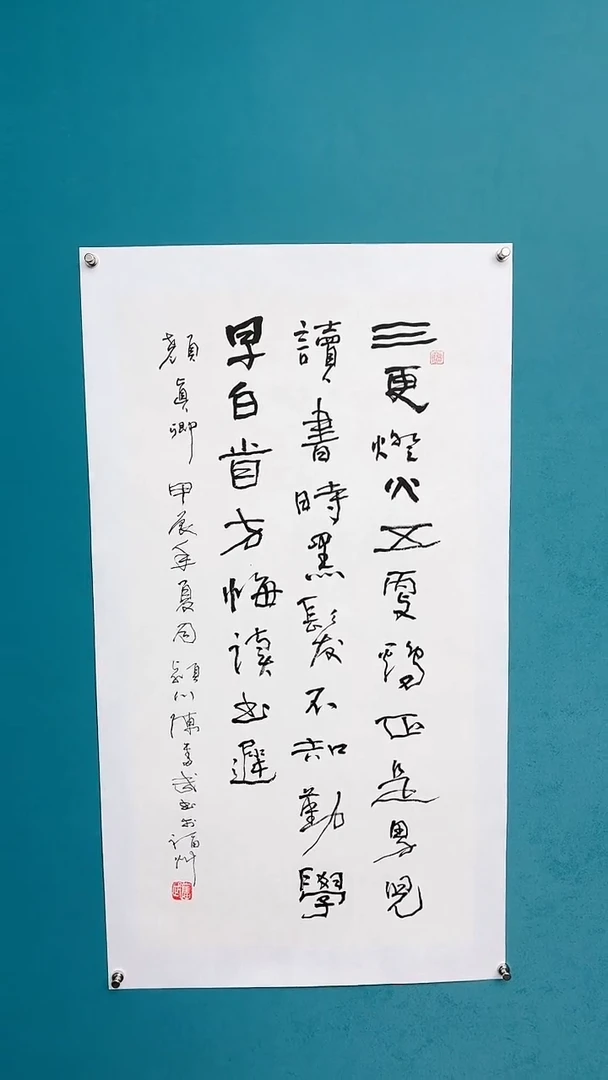 三更燈火五更鷄正是男兒
讀書時黑髮不知勤學
早白首方悔讀书遲
顏眞卿 甲辰年夏 潁川陳奮武书於福州